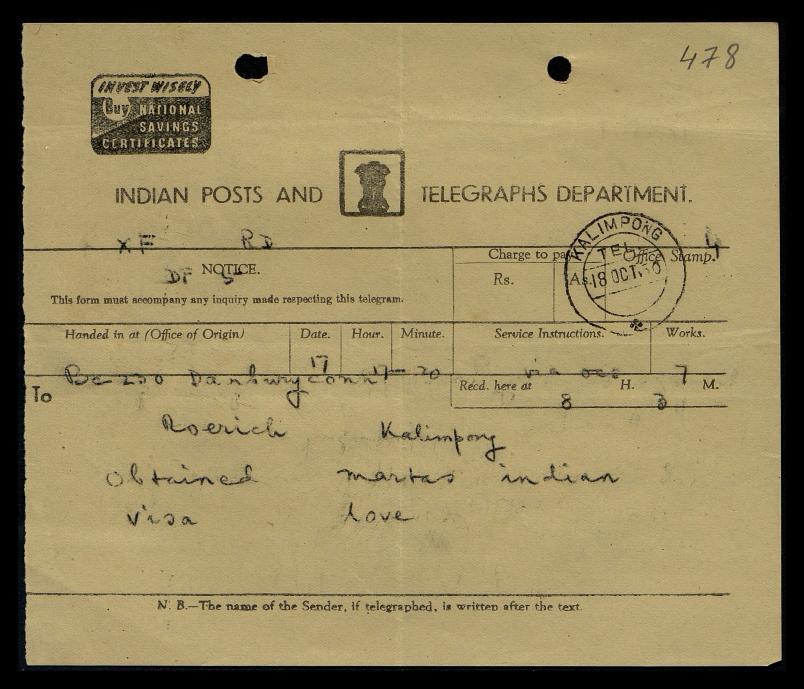 478
INVEST WISELY
Buy NATIONAL
SAVINGS
CERTIFICATES
INDIAN POSTS AND TELEGRAPHS DEPARTMENT.
XF RD 4
KALIMPONG
TEL.
18 OCT.
NOTICE.
DF 5
Charge to pay Office Stamp.
Rs. As.
This form must accompany any inquiry made respecting this telegram.
Handed in at (Office of Origin) Date. Hour. Minute. Service Instructions. Works.
Bc 230 Danbury Conn 17 17-20 via 7
To
Recd. here at H. M.
8 3
Roerich Kalimpong
Obtained martas indian
visa love
N. B.—The name of the Sender, if telegraphed, is written after the text.